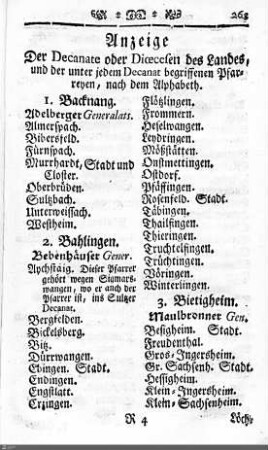 263
Anzeige
Der Decanate oder Diœcesen des Landes,
und der unter jedem Decanat begriffenen Pfar-
reyen, nach dem Alphabeth.
1. Backnang.
Adelberger Generalats.
Almerspach.
Bibersfeld.
Fürnspach.
Murrhardt, Stadt und
Closter.
Oberbrüden.
Sulzbach.
Unterweissach.
Westheim.
2. Bahlingen.
Bebenhäuser Gener.
Aychstaig. Dieser Pfarrer
gehört wegen Sigmars-
wangen, wo er auch der
Pfarrer ist, ins Sulzer
Decanat.
Bergfelden.
Bickelsberg.
Bitz.
Dürrwangen.
Ebingen. Stadt.
Endingen.
Engstlatt.
Erzingen.
Flötzlingen.
Frommern.
Heselwangen.
Leydringen.
Mößingen.
Onstmettingen.
Ostdorf.
Pfäffingen.
Rosenfeld. Stadt.
Täbingen.
Thailfingen.
Thieringen.
Truchtelfingen.
Trüchtingen.
Vöringen.
Winterlingen.
3. Bietigheim.
Maulbronner Gen.
Besigheim. Stadt.
Freudenthal.
Gros-Ingersheim.
Gr. Sachsenh. Stadt.
Hessigheim.
Klein-Ingersheim.
Klein-Sachsenheim.
R 4
Löch-